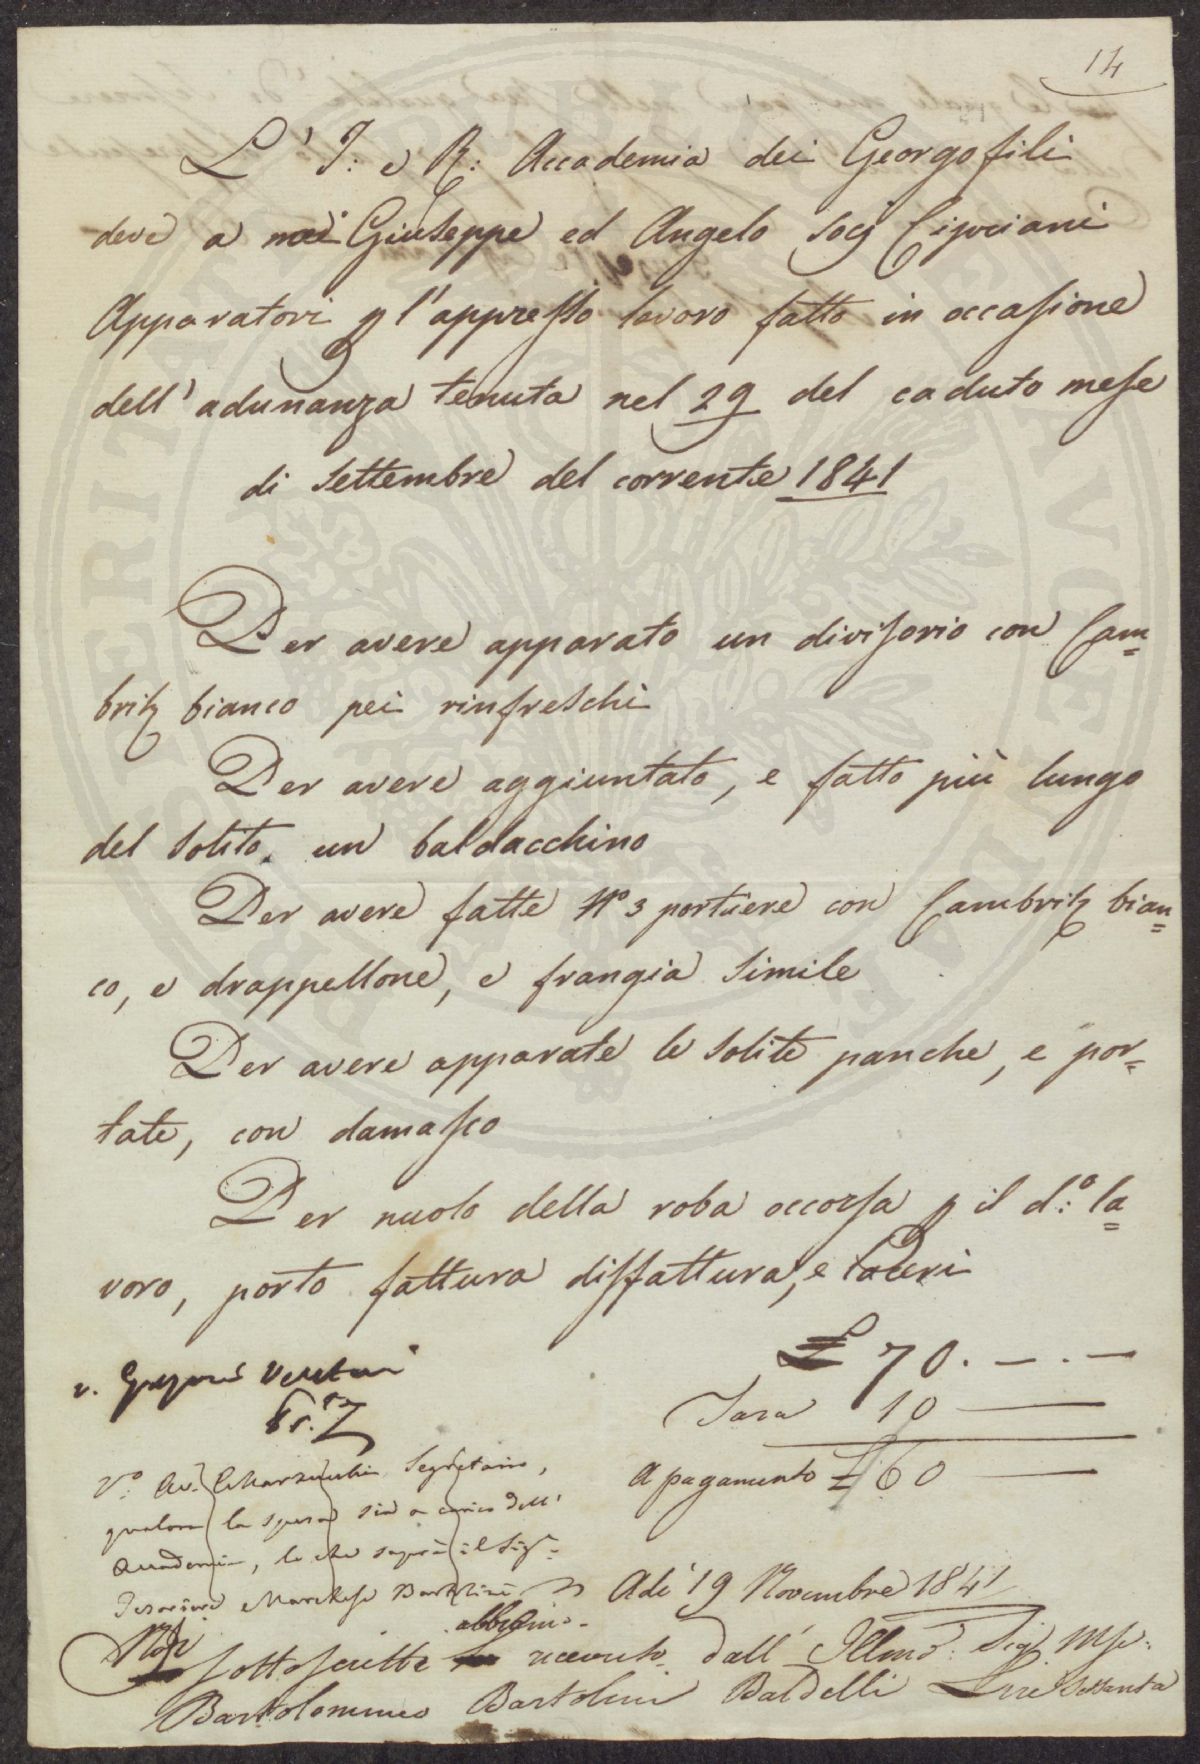 14
L' I: e R: Accademia dei Georgofili
deve a noi Giuseppe ed Angelo Socj Cipriani
Apparatori p l'appresso lavoro fatto in occasione
dell' adunanza tenuta nel 29 del caduto mese
di Settembre del corrente 1841
Per avere apparato un divisorio con Cam=
brik bianco pei rinfreschi
Per avere aggiuntato, e fatto più lungo
del solito un baldacchino
Per avere fatte N° 3 portiere con Cambrik bian=
co, e drappellone, e frangia simile
Per avere apparate le solite panche, e por=
tate, con damasco
Per nuolo della roba occorsa p il d:° la=
voro, porto fattura disfattura, e
£ 70. — . —
Tara 10 —
A pagamento £ 60 —
V° Av. Marzucchi Segretario,
qualora la spesa sia a carico dell'
Accademia, lo che saprà il Sigr
Tesoriere Marchese Bartolini
Adì 19 Novembre 1841
Noi sottoscritti abbiamo ricevuto dall' Illmo: Sigr Mse:
Bartolommeo Bartolini Baldelli Lire Sessanta